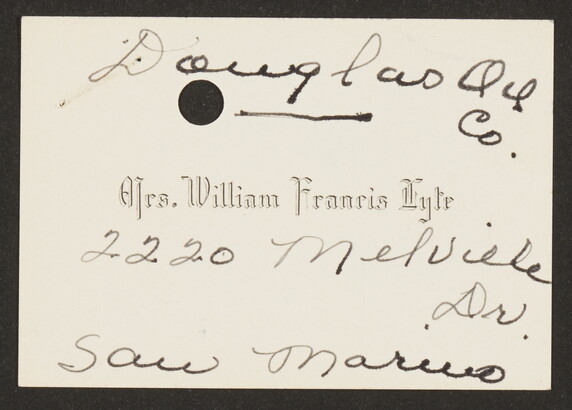 Douglas Oil
Co.
Mrs. William Francis Lyte
2220 Melville
Dr.
San Marino